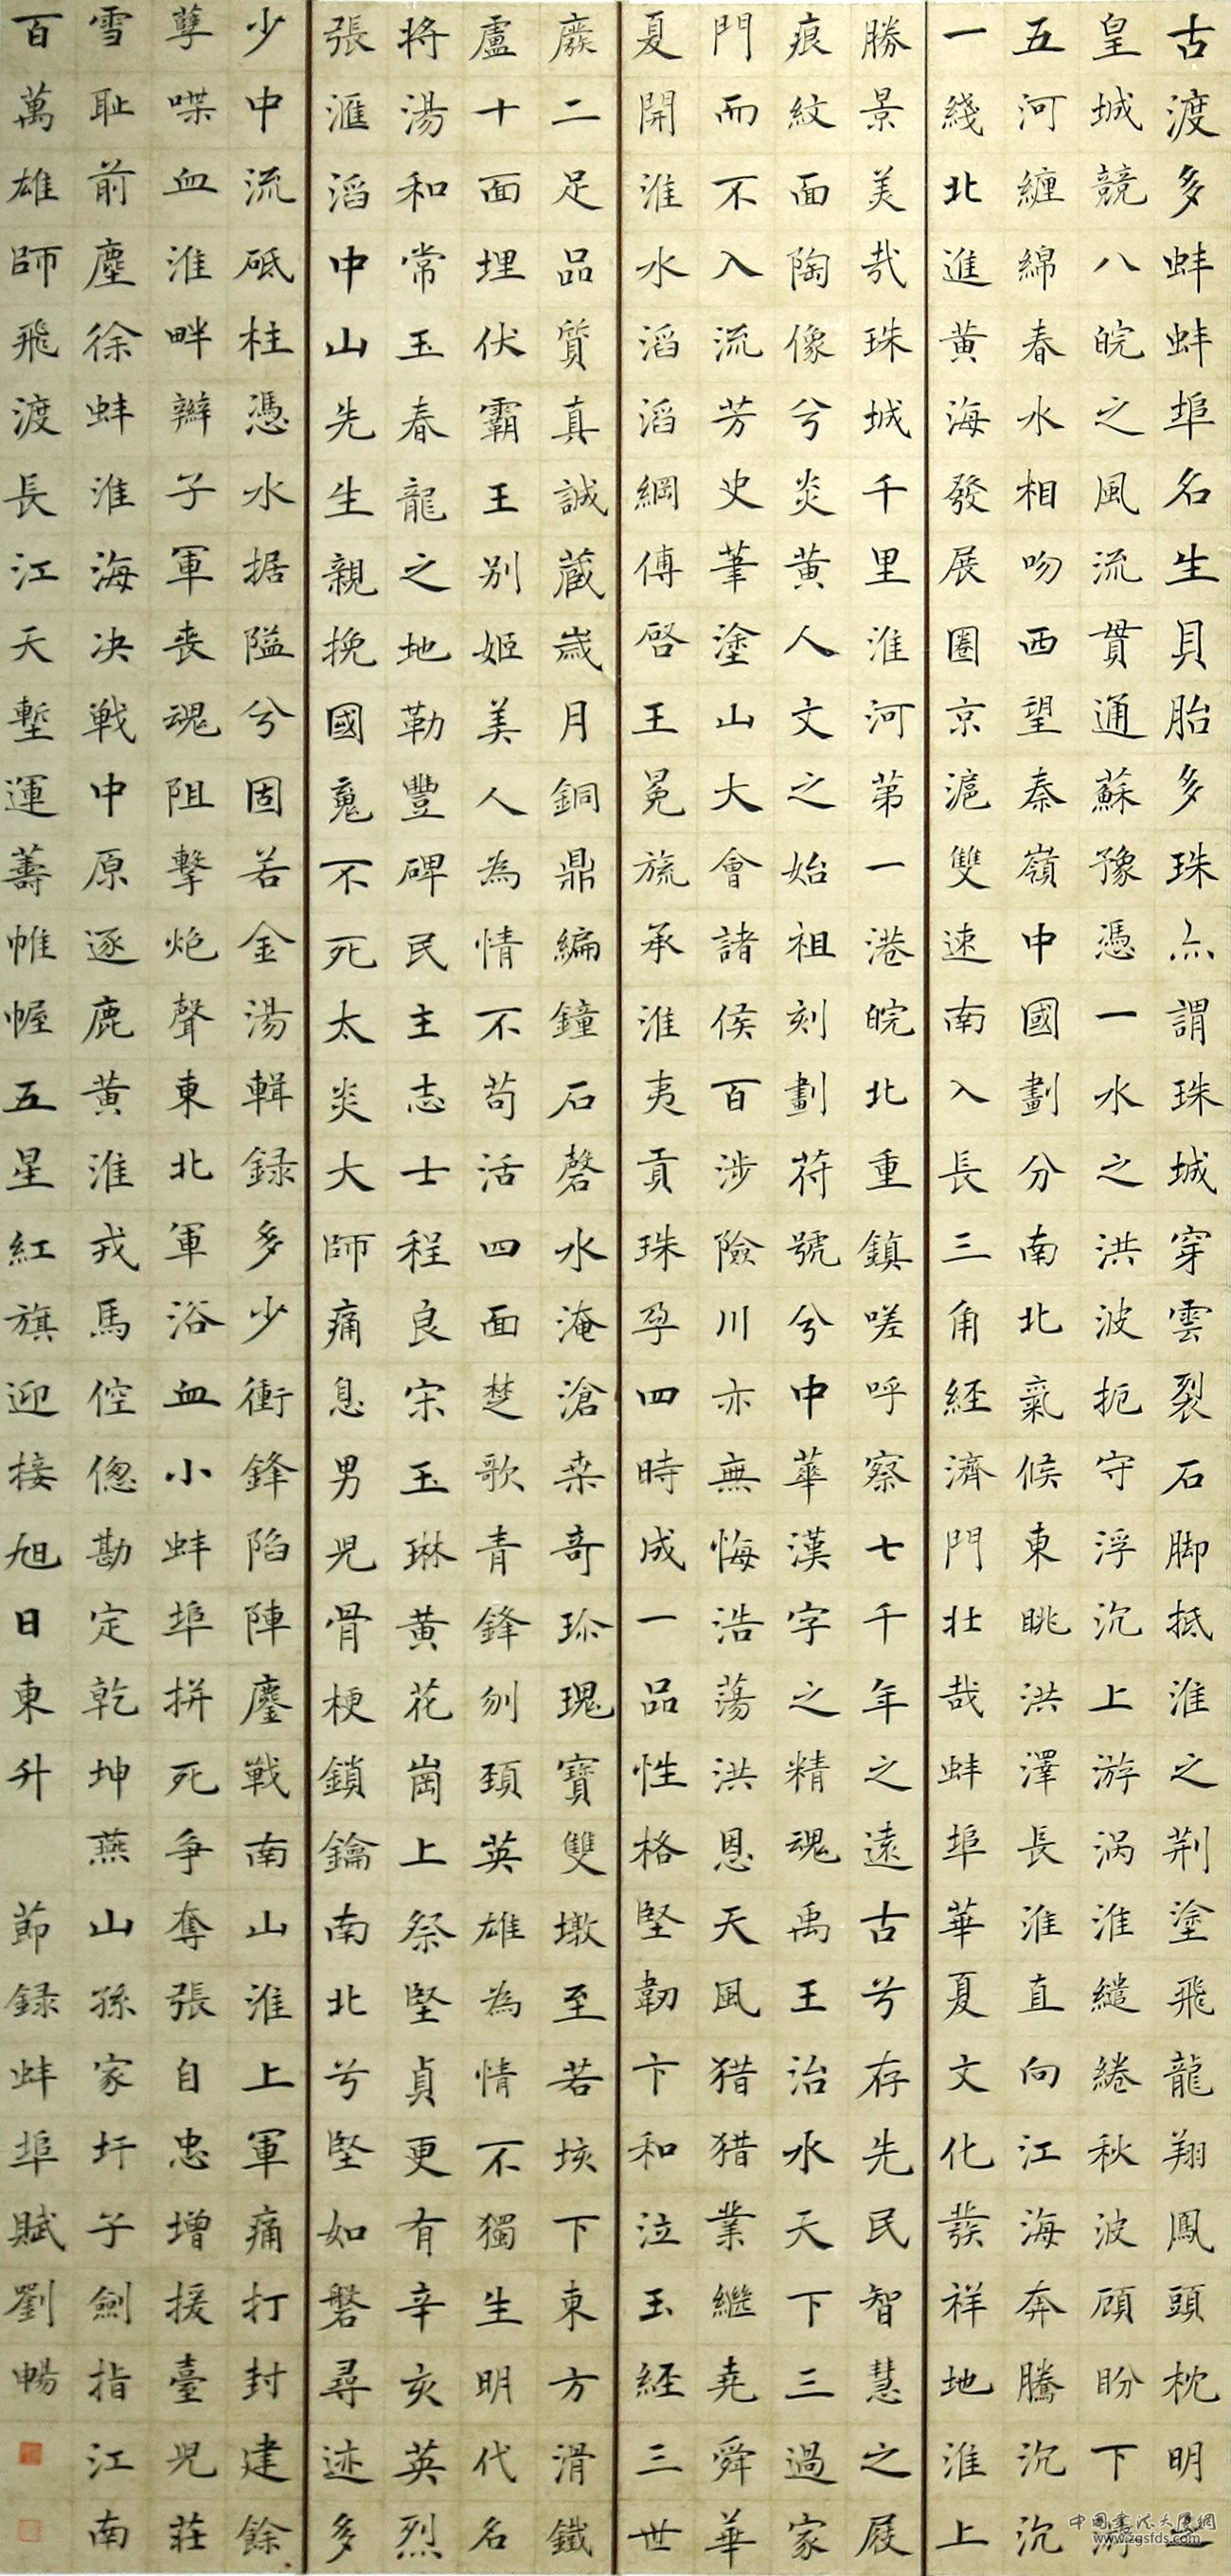 古渡多蚌蚌埠名生貝胎多珠亦謂珠城穿雲裂石脚抵淮之荆塗飛龍翔鳳頭枕明之
皇城競八皖之風流貫通蘇豫憑一水之洪波扼守浮沉上游涡淮繾綣秋波顧盼下游
五河纏綿春水相吻西望秦嶺中國劃分南北氣候東眺洪澤長淮直向江海奔騰沉沉
一綫北進黄海發展圈京滬雙速南入長三角經濟門壯哉蚌埠華夏文化發祥地淮上
勝景美哉珠城千里淮河第一港皖北重鎮嗟呼察七千年之遠古兮存先民智慧之屐
痕紋面陶像兮炎黄人文之始祖刻劃符號兮中華漢字之精魂禹王治水天下三過家
門而不入流芳史筆塗山大會諸侯百涉險川亦無悔浩蕩洪恩天風猎猎業繼堯舜華
夏開淮水滔滔綱傅啓王冕旒承淮夷貢珠孕四時成一品性格堅韌卞和泣玉經三世
廢二足品質真誠藏歲月銅鼎編鐘石磬水淹滄桑奇珍瑰寶雙墩至若垓下東方滑鐵
盧十面埋伏霸王别姬美人為情不苟活四面楚歌青鋒刎頚英雄為情不獨生明代名
將湯和常玉春龍之地勒豐碑民主志士程良宗玉琳黄花崗上祭堅貞更有辛亥英烈
張滙滔中山先生親挽國魂不死太炎大師痛息男兒骨梗鎖鑰南北兮堅如磐尋迹多
少中流砥柱憑水据隘兮固若金湯輯録多少衝鋒陷陣鏖戰南山淮上軍痛打封建餘
孽喋血淮畔辮子軍喪魂阻擊炮聲東北軍浴血小蚌埠拼死爭奪張自忠增援臺兒莊
雪耻前塵徐蚌淮海决戰中原逐鹿黄淮戎馬倥偬勘定乾坤燕山孫家圩子劍指江南
百萬雄師飛渡長江天塹運籌帷幄五星紅旗迎接旭日東升 節録蚌埠賦劉暢
中国書法大厦網
www.zgsfds.com